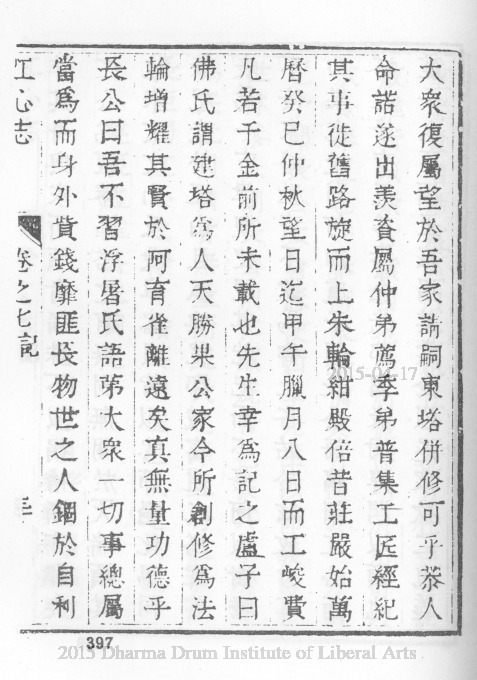 大衆復屬望於吾家請嗣東塔併修可乎恭人
命諾遂出羨資屬仲弟薦季弟普集工匠經紀
其事從舊路旋而上朱輪紺殿倍昔莊嚴始萬
曆癸巳仲秋望日迄甲午臘月八日而工峻費
凡若千金前所未載也先生幸爲記之盧子曰
佛氏謂建塔爲人天勝果公家今所創修爲法
輪增耀其賢於阿育雀離遠矣真無量功德乎
長公曰吾不習浮屠氏語第大衆一切事總屬
當爲而身外貲錢靡匪長物世之人錮於自利
江心志
卷之七記
397
2015-04-17
2015 Dharma Drum Institute of Liberal Arts